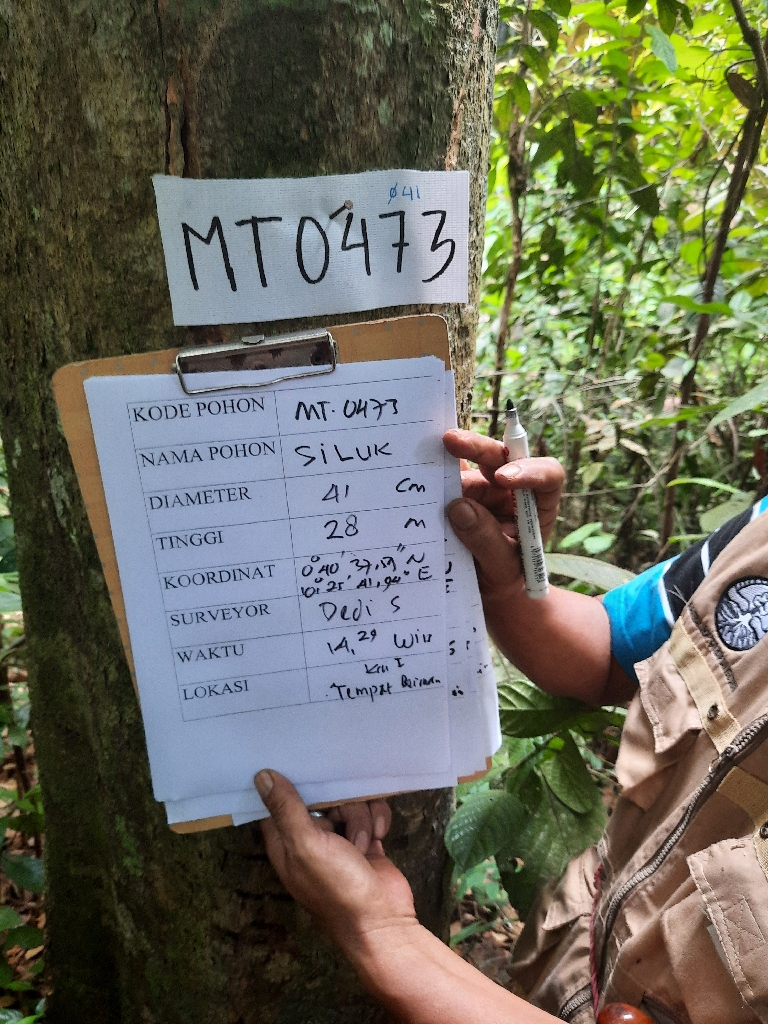 ø 41
MT0473
KODE POHON MT. 0473
NAMA POHON SiLUK
DIAMETER 41 Cm
TINGGI 28 m
KOORDINAT 0° 40' 37,59" N
101° 25' 41,94" E
SURVEYOR Dedi S
WAKTU 14,29 Wib
LOKASI KM I
Tempat